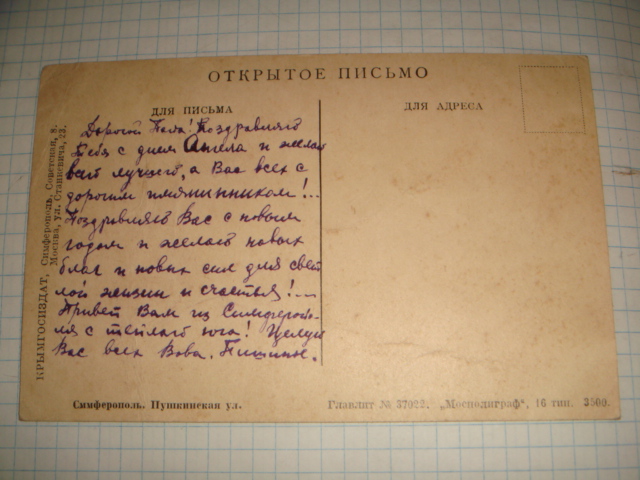 ОТКРЫТОЕ ПИСЬМО
ДЛЯ ПИСЬМА
ДЛЯ АДРЕСА
КРЫМГОСИЗДАТ, Симферополь, Советская, 8.
Москва, ул. Станкевича, 23.
Дорогой Папа! Поздравляю
Тебя с днем Ангела и желаю
всего лучшего, а Вас всех с
дорогим имянинником!..
Поздравляю Вас с новым
годом и желаю новых
благ и новых сил для свет
лой жизни и счастья!...
Привет Вам из Симферопо-
ля с теплого юга! Целую
Вас всех Вова. Пишите.
Симферополь. Пушкинская ул.
Главлит № 37022. „Мосполиграф“, 16 тип. 3500.